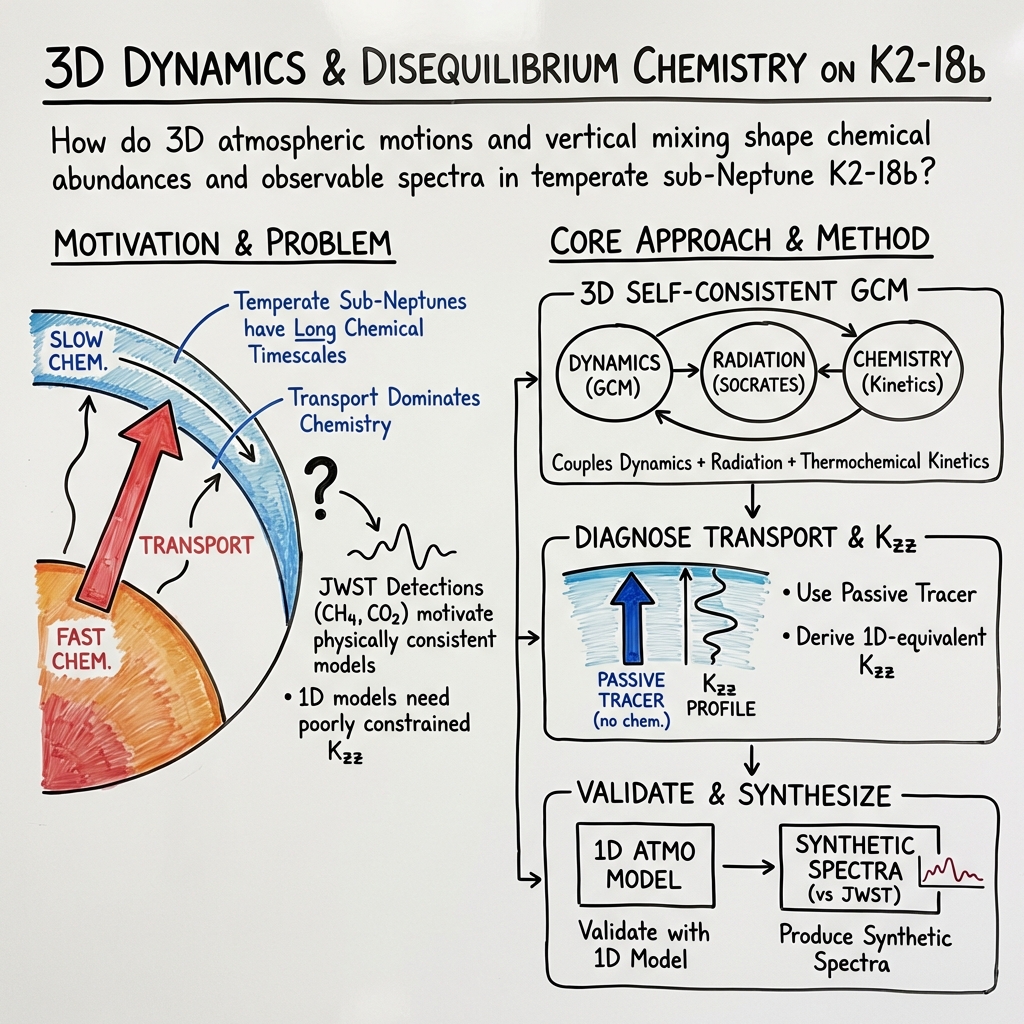 3D DYNAMICS & DISEQUILIBRIUM CHEMISTRY ON K2-18b
How do 3D atmospheric motions and vertical mixing shape chemical
abundances and observable spectra in temperate sub-Neptune K2-18b?
MOTIVATION & PROBLEM
SLOW
CHEM.
Temperate Sub-Neptunes
have Long Chemical
Timescales
Transport Dominates
Chemistry
?
TRANSPORT
FAST
CHEM.
JWST Detections
(CH₄, CO₂) motivate
physically consistent
models
• 1D models need
poorly constrained
Kzz
CORE APPROACH & METHOD
3D SELF-CONSISTENT GCM
DYNAMICS
(GCM)
RADIATION
(SOCRATES)
CHEMISTRY
(Kinetics)
Couples Dynamics + Radiation + Thermochemical Kinetics
DIAGNOSE TRANSPORT & Kzz
PASSIVE
TRACER
(no chem.)
Kzz
PROFILE
• Use Passive Tracer
• Derive 1D-equivalent
Kzz
VALIDATE & SYNTHESIZE
1D ATMO
MODEL
Validate with
1D Model
SYNTHETIC
SPECTRA
(vs JWST)
Produce Synthetic
Spectra